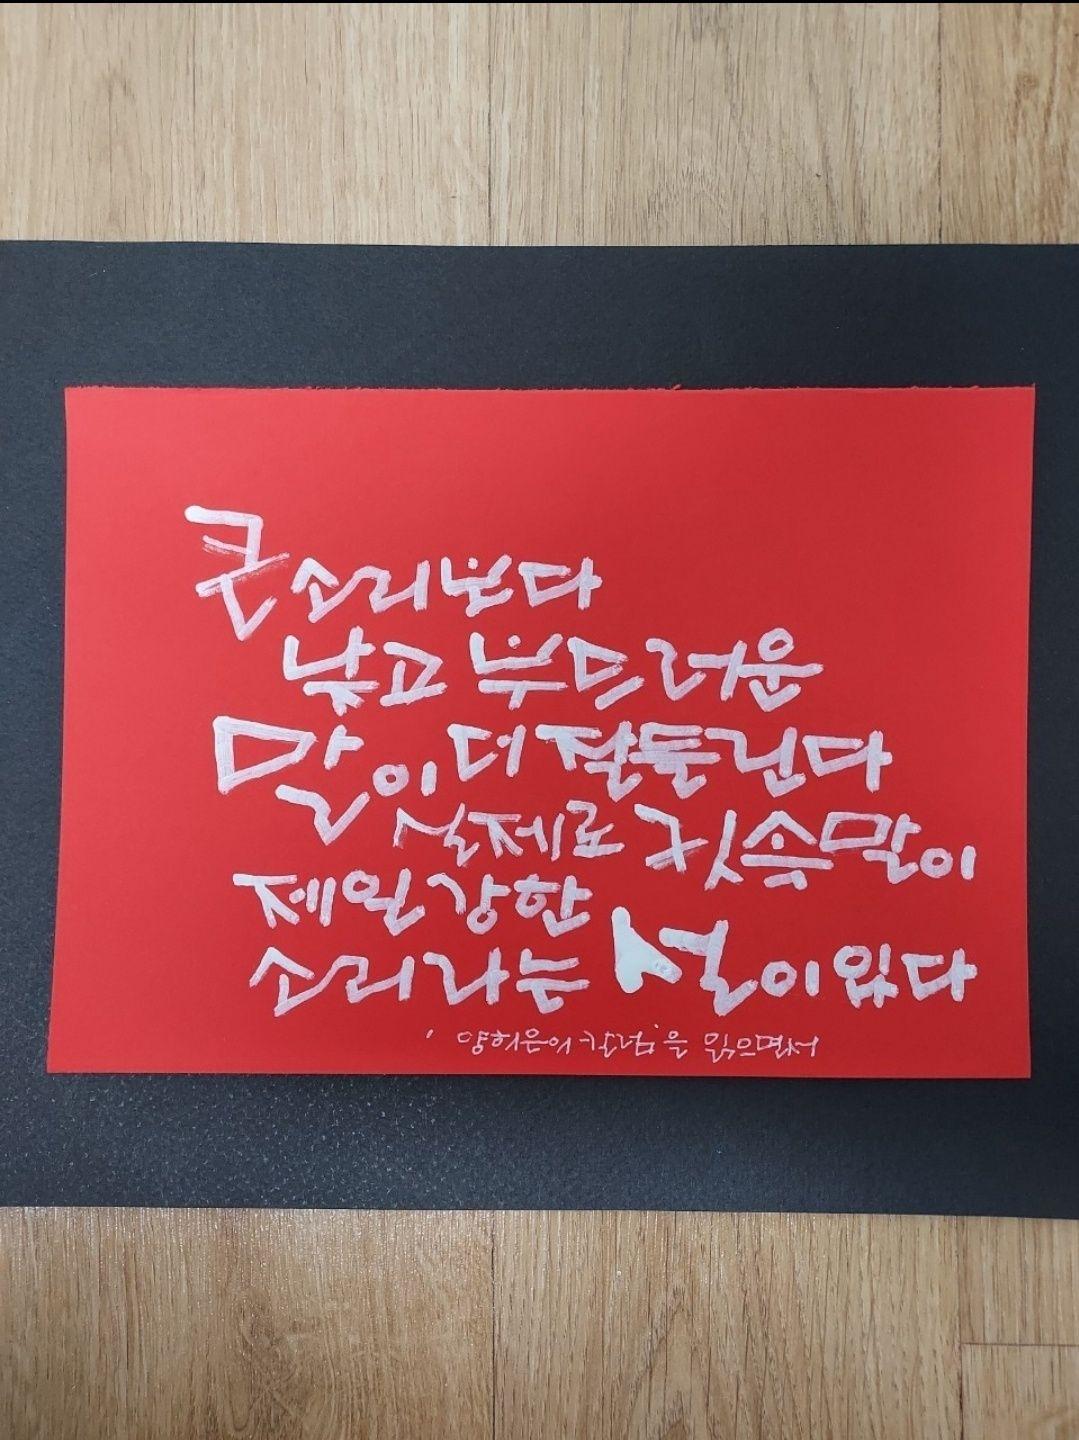 큰소리보다
낮고 부드러운
말이 더 잘 들린다
실제로 귓속말이
제일 강한
소리라는 설이 있다
' 양희은의 칼럼'을 읽으면서